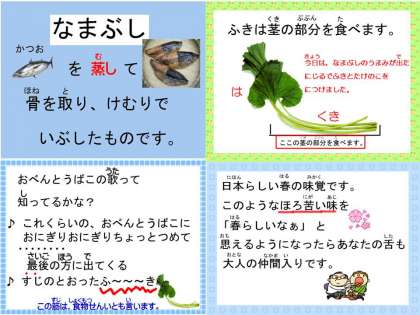 なまぶし
かつおを蒸して
骨を取り、けむりで
いぶしたものです。
ふきは茎の部分を食べます。
今日は、なまぶしのうまみが出た
にじるでふきとたけのこを
につけました。
は
くき
ここの茎の部分を食べます。
おべんとうばこの歌って
知ってるかな？
♪ これくらいの、おべんとうばこに
おにぎりおにぎりちょっとつめて
最後の方に出てくる
♪ すじのとおったふ～～～～き
この筋は、食物せんいとも言います。
日本らしい春の味覚です。
このようなほろ苦い味を
「春らしいなぁ」と
思えるようになったらあなたの舌も
大人の仲間入りです。